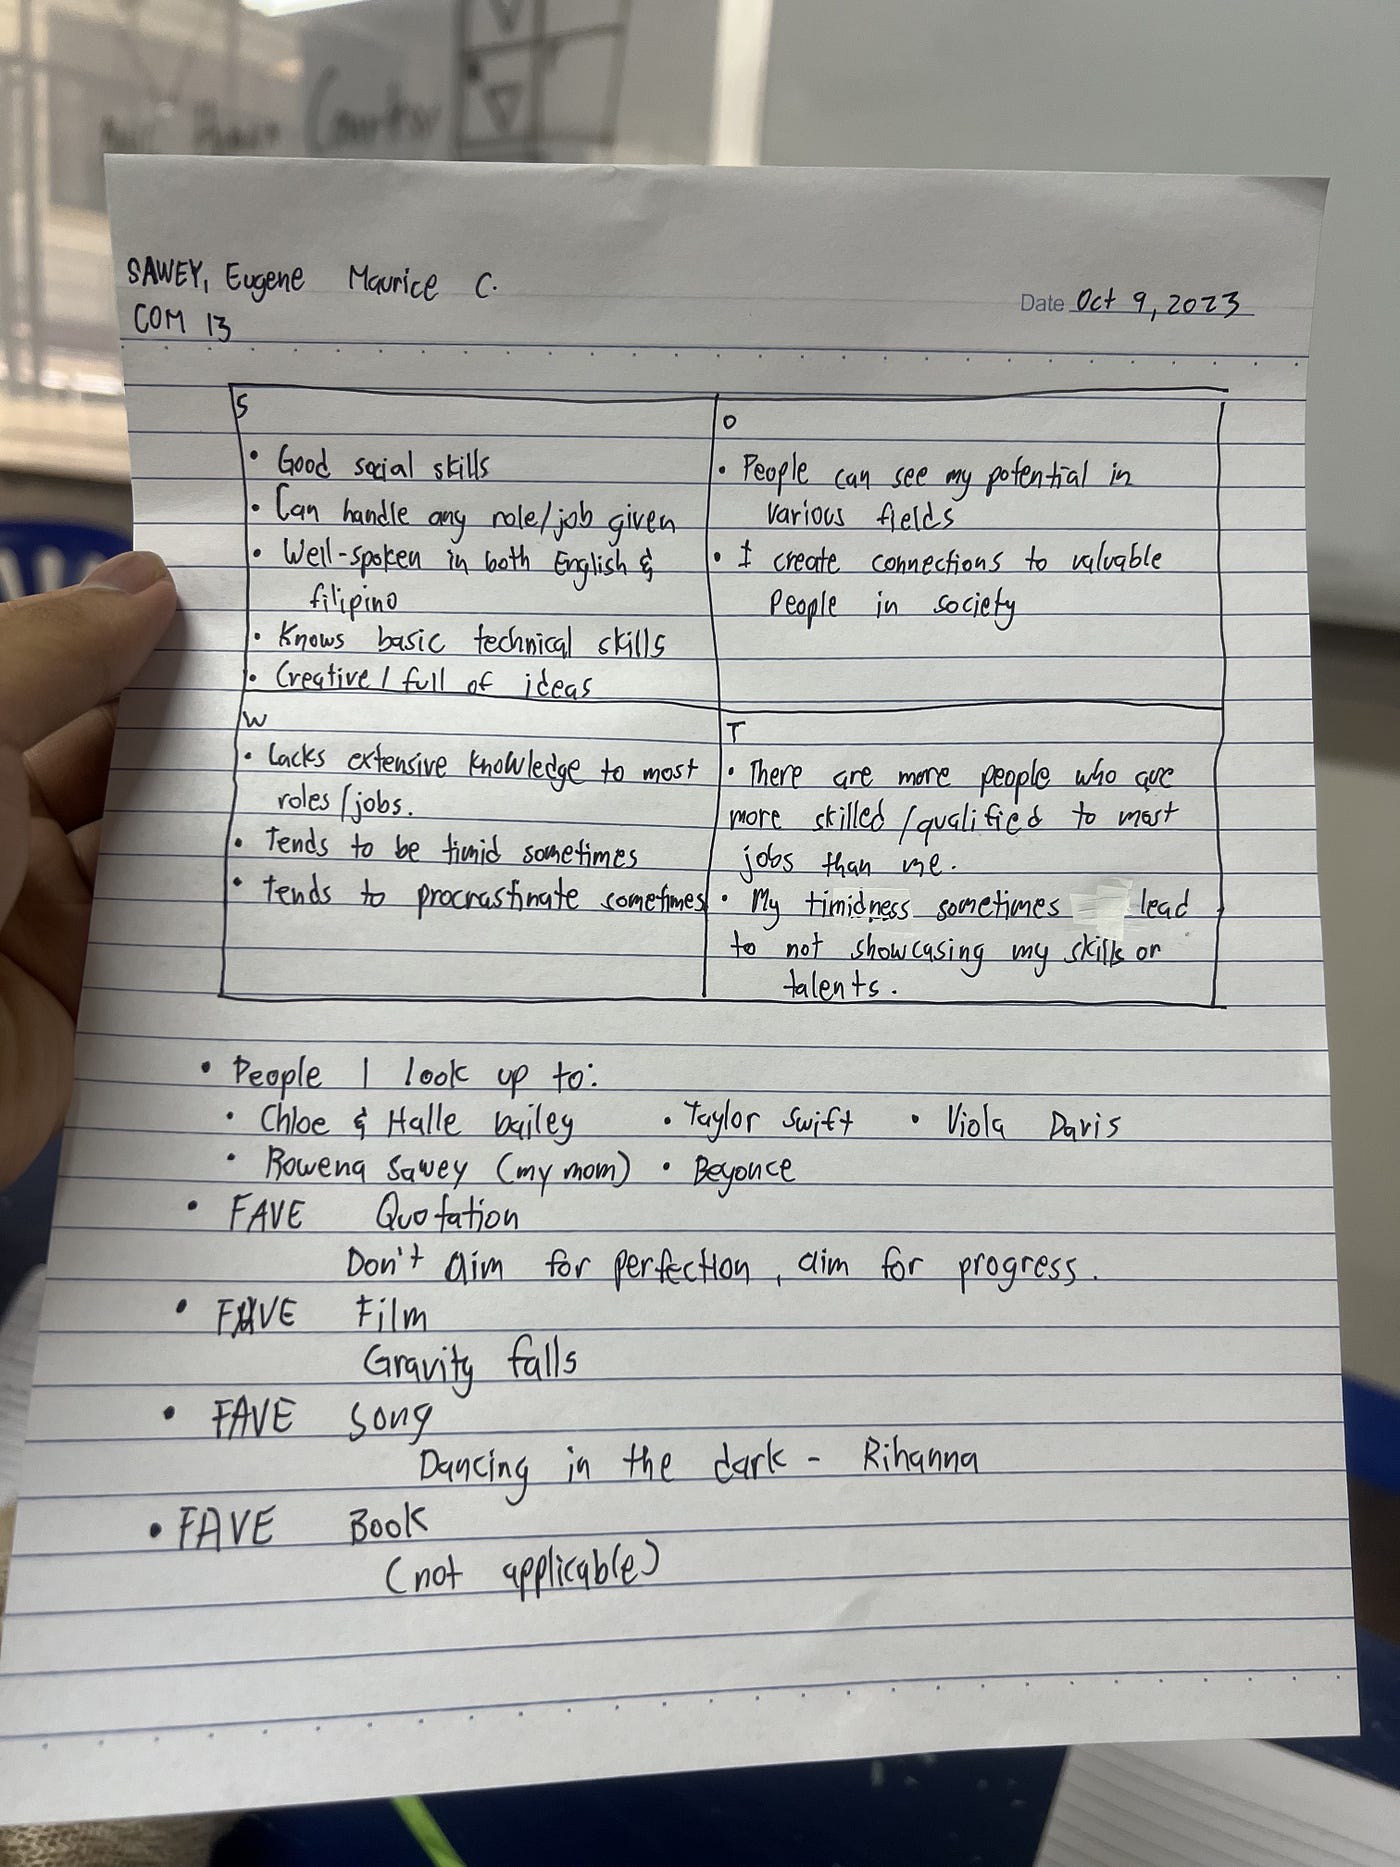 Counter
SAWEY, Eugene Maurice C.
COM 13
Date Oct 9, 2023
S
• Good social skills
• Can handle any role/job given
• Well-spoken in both English &
filipino
• Knows basic technical skills
• Creative / full of ideas
O
• People can see my potential in
various fields
• I create connections to valuable
people in society
W
• Lacks extensive knowledge to most
roles/jobs.
• Tends to be timid sometimes
• Tends to procrastinate sometimes
T
• There are more people who are
more skilled/qualified to most
jobs than me.
• My timidness sometimes lead
to not showcasing my skills or
talents.
• People I look up to:
• Chloe & Halle bailey • Taylor Swift • Viola Davis
• Rowena Sawey (my mom) • Beyonce
• FAVE Quotation
Don't aim for perfection, aim for progress.
• FAVE Film
Gravity falls
• FAVE Song
Dancing in the dark - Rihanna
• FAVE Book
(not applicable)